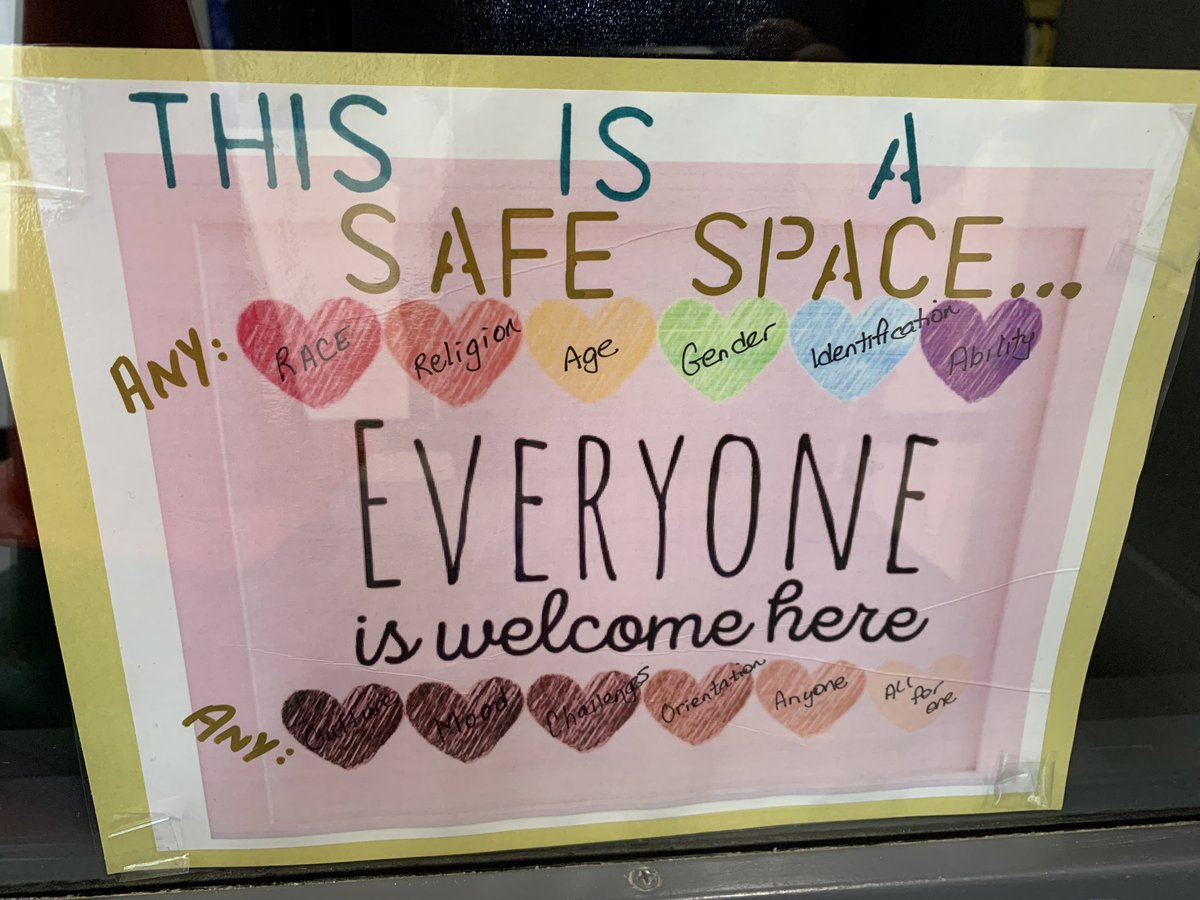 THIS IS A
SAFE SPACE...
ANY: RACE Religion Age Gender Identification Ability
EVERYONE
is welcome here
ANY: Culture Mood Challenges Orientation Anyone All for one